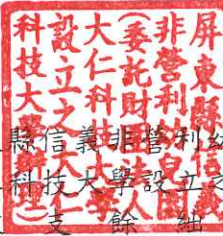 屏東縣信義
非營利幼兒園
(委託財團法人
大仁科技大學
設立之大仁
科技大學辦理)
縣信義非營利幼
科技大學設立之
支餘絀